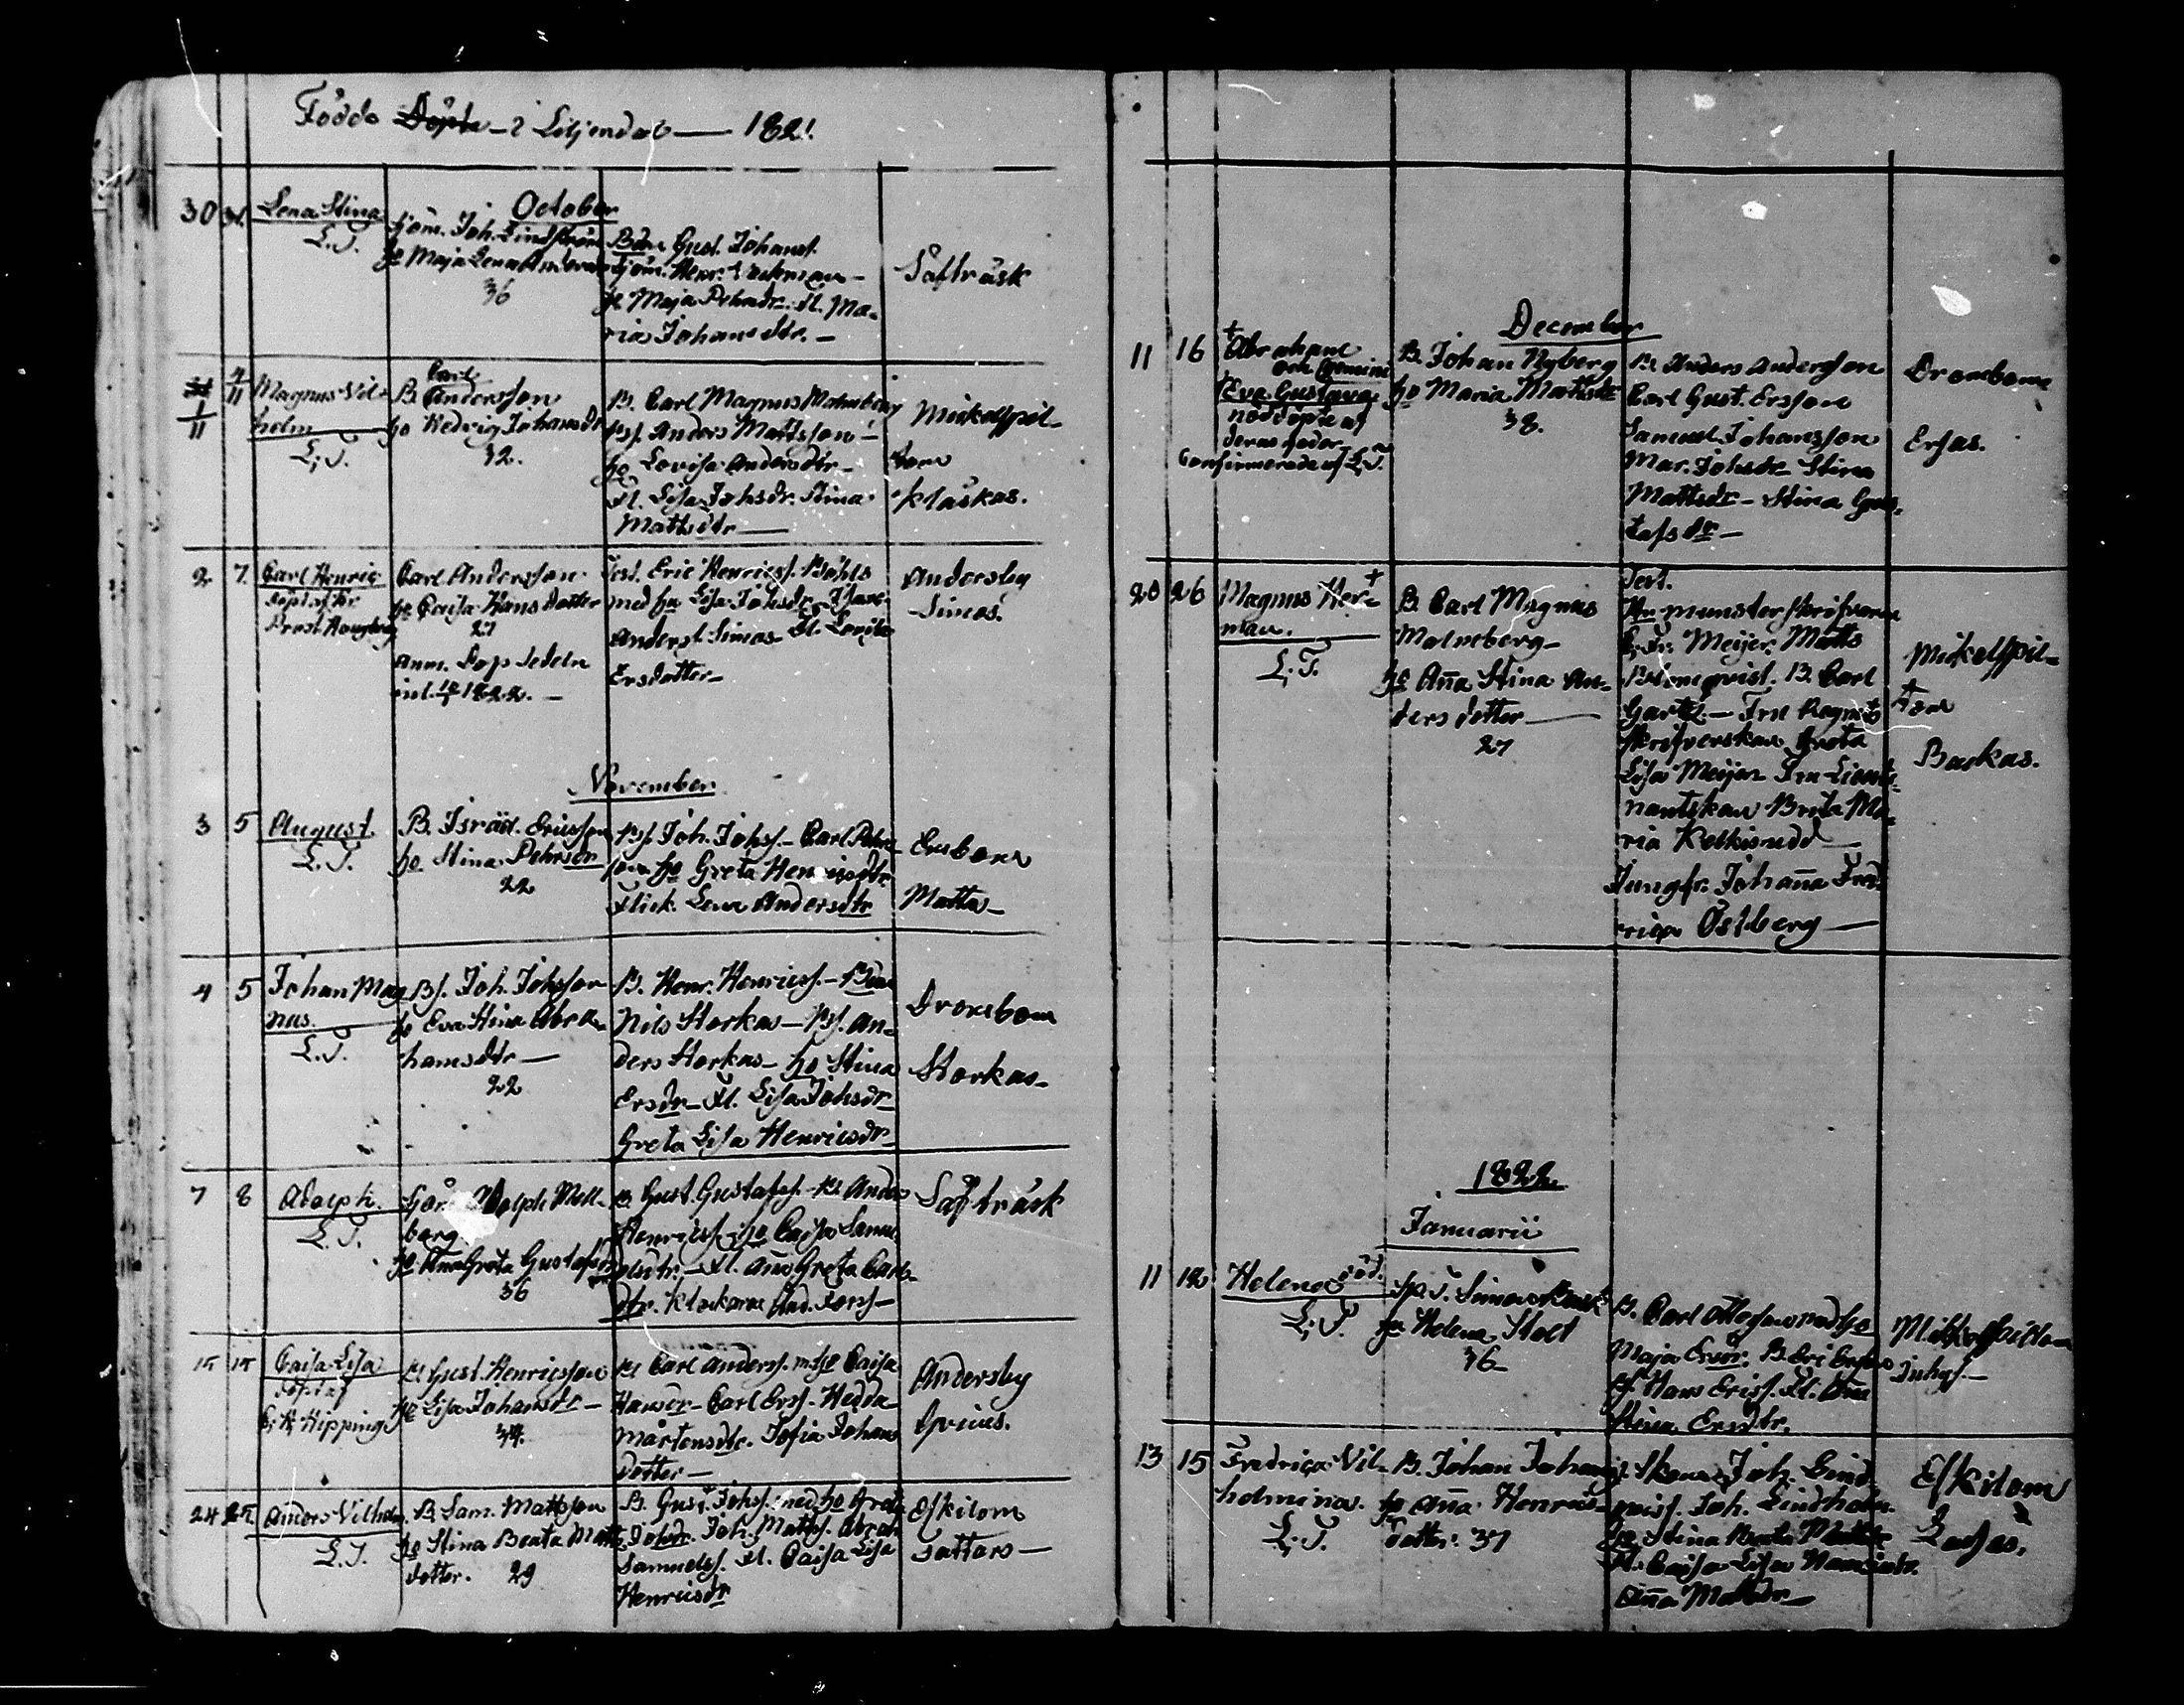 Födde Döpte - i Liljendal — 1821.
October
30 31. Lena Stina
L. T.
Joh. Lindström
ho Maja Lena
36
Bdn Gust. Johanss.
ho Maja Pehrsdr. fl. Ma-
ria Johansdtr. –
Säfträsk
31 4/11
1/11
Magnus Vil-
helm
L. T.
Carl
B. Andersson
ho Hedvig Johansdr
32.
B. Carl Magnus Malmberg
Anders Mattsson –
ho Lovisa Andersdtr –
Fl. Lisa Johsdr. Stina
Mattsdtr —
Mickelspil-
tom
Klaskas.
2 7. Carl Henric
döpt af Hr
Prost
Carl Andersson
ho Cajsa Hansdotter
27
Anm. Dop sedeln
1822. –
Test. Eric Henricss. Böhls
med hu Lisa Johsdr.
Anders Simas Fl. Lovisa
Ersdotter –
Andersby
Simas.
November
3 5 August.
L. T.
B. Israël Ericsson
ho. Stina Pehrsdr
22
Joh. Johss. – Carl Pehrs-
son ho Greta Henricsdtr.
Flick. Lena Andersdtr
Ersbom
Matta –
4 5 Johan Mag
nus.
L. T.
Bs. Joh. Johsson
ho Eva Stina Abra-
hamsdtr —
22
B. Henr. Henricss. – Bdn
Nils Storkas – Bs. An-
ders Storkas – ho Stina
Ersdr – Fl. Lisa Johsdr
Greta Lisa Henricsdr –
Drombom
Storkas –
7 8 Adolph.
L. T.
Adolph Mell-
berg.
ho Anna Greta Gustafs
36
B. Gust. Gustafss. – Anders
Henricss. ho Cajsa Samu-
elsdtr. – Fl. Aña Greta Carls-
dtr. Klockaren And. Forss –
Säfträsk
15 15 Cajsa Lisa
döpt af
Hipping
Gust. Henricsson
ho Lisa Johansdr –
34.
Carl Anderss. m. ho Cajsa
Hansdr – Carl Erss. Hedda
Mårtensdtr. Sofia Johans
dotter –
Andersby
24 25. Anders Vilhelm.
L. T.
B. Sam. Mattsson
ho Stina Beata Matts-
dotter. 29
B. Gust. Johss. med ho Greta
Johsdr. Joh. Mattss. Abrah.
Samuelss. Fl. Cajsa Lisa
Henricsdr
Eskilom
Sattars –
December
11 16 + Abraham
och Gemini
Eva Gustava
nöddöpte af
deras fader
Confirmerade af L. T.
B. Johan Nyberg
ho Maria Mattsdr
38.
B. Anders Andersson
Carl Gust. Ersson
Samuel Johansson
Mar. Johsdr Stina
Mattsdr – Stina Gus-
tafsdr –
Drombom
Ersas.
20 26 Magnus Her- +
man.
L. T.
B. Carl Magnus
Malmberg –
ho Aña Stina An-
dersdotter —
27
Test.
Hr munsterskrifvaren
Meijer. Matts
Blomqvist. B. Carl
Gartz. – Fru Regmts
skrifverskan Greta
Lisa Meijer Fru Lieute-
nantskan Brita Ma-
ria
Jungfr. Johaña Fred-
rica Östberg —
Mickelspil-
tom
Backas.
1822.
Januarii
11 12 Helena
L. T.
Simon
ho Helena Stolt
36
B. Carl
Maja Ersdr. B. Eric Ersson
Hans Erics. Fl.
Stina Ersdtr.
Inhys. –
13 15 Fredrica Vil-
helmina.
L. T.
B. Johan Johans
ho Aña Henrics-
dotter. 37
Joh. Lind
qvist. Joh. Lindholm.
ho Stina Mattsdr
Fl. Cajsa Lisa
Aña Mattsdr –
Eskilom